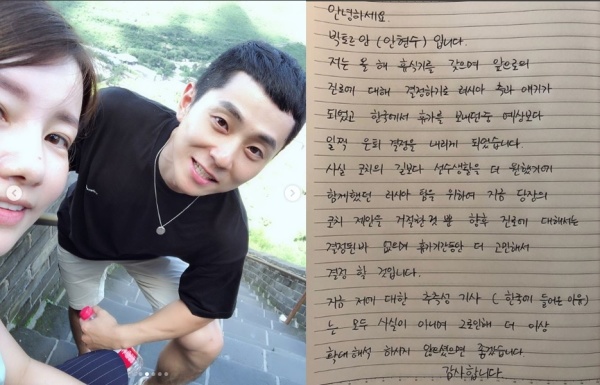 안녕하세요.
빅토르안 (안현수) 입니다.
저는 올 해 휴식기를 갖으며 앞으로의
진로에 대해 결정하기로 러시아 측과 얘기가
되었고 한국에서 휴가를 보내던중 예상보다
일찍 은퇴 결정을 내리게 되었습니다.
사실 코치의 길보다 선수생활을 더 원했기에
함께했던 러시아 팀을 위하여 지금 당장의
코치 제안을 거절한것 뿐 향후 진로에 대해서는
결정된바 없으며 휴가기간동안 더 고민해서
결정 할 것입니다.
지금 저에 대한 추측성 기사 ( 한국에 들어온 이유)
는 모두 사실이 아니며 그로인해 더 이상
확대 해석 하시지 않으셨으면 좋겠습니다
감사합니다.